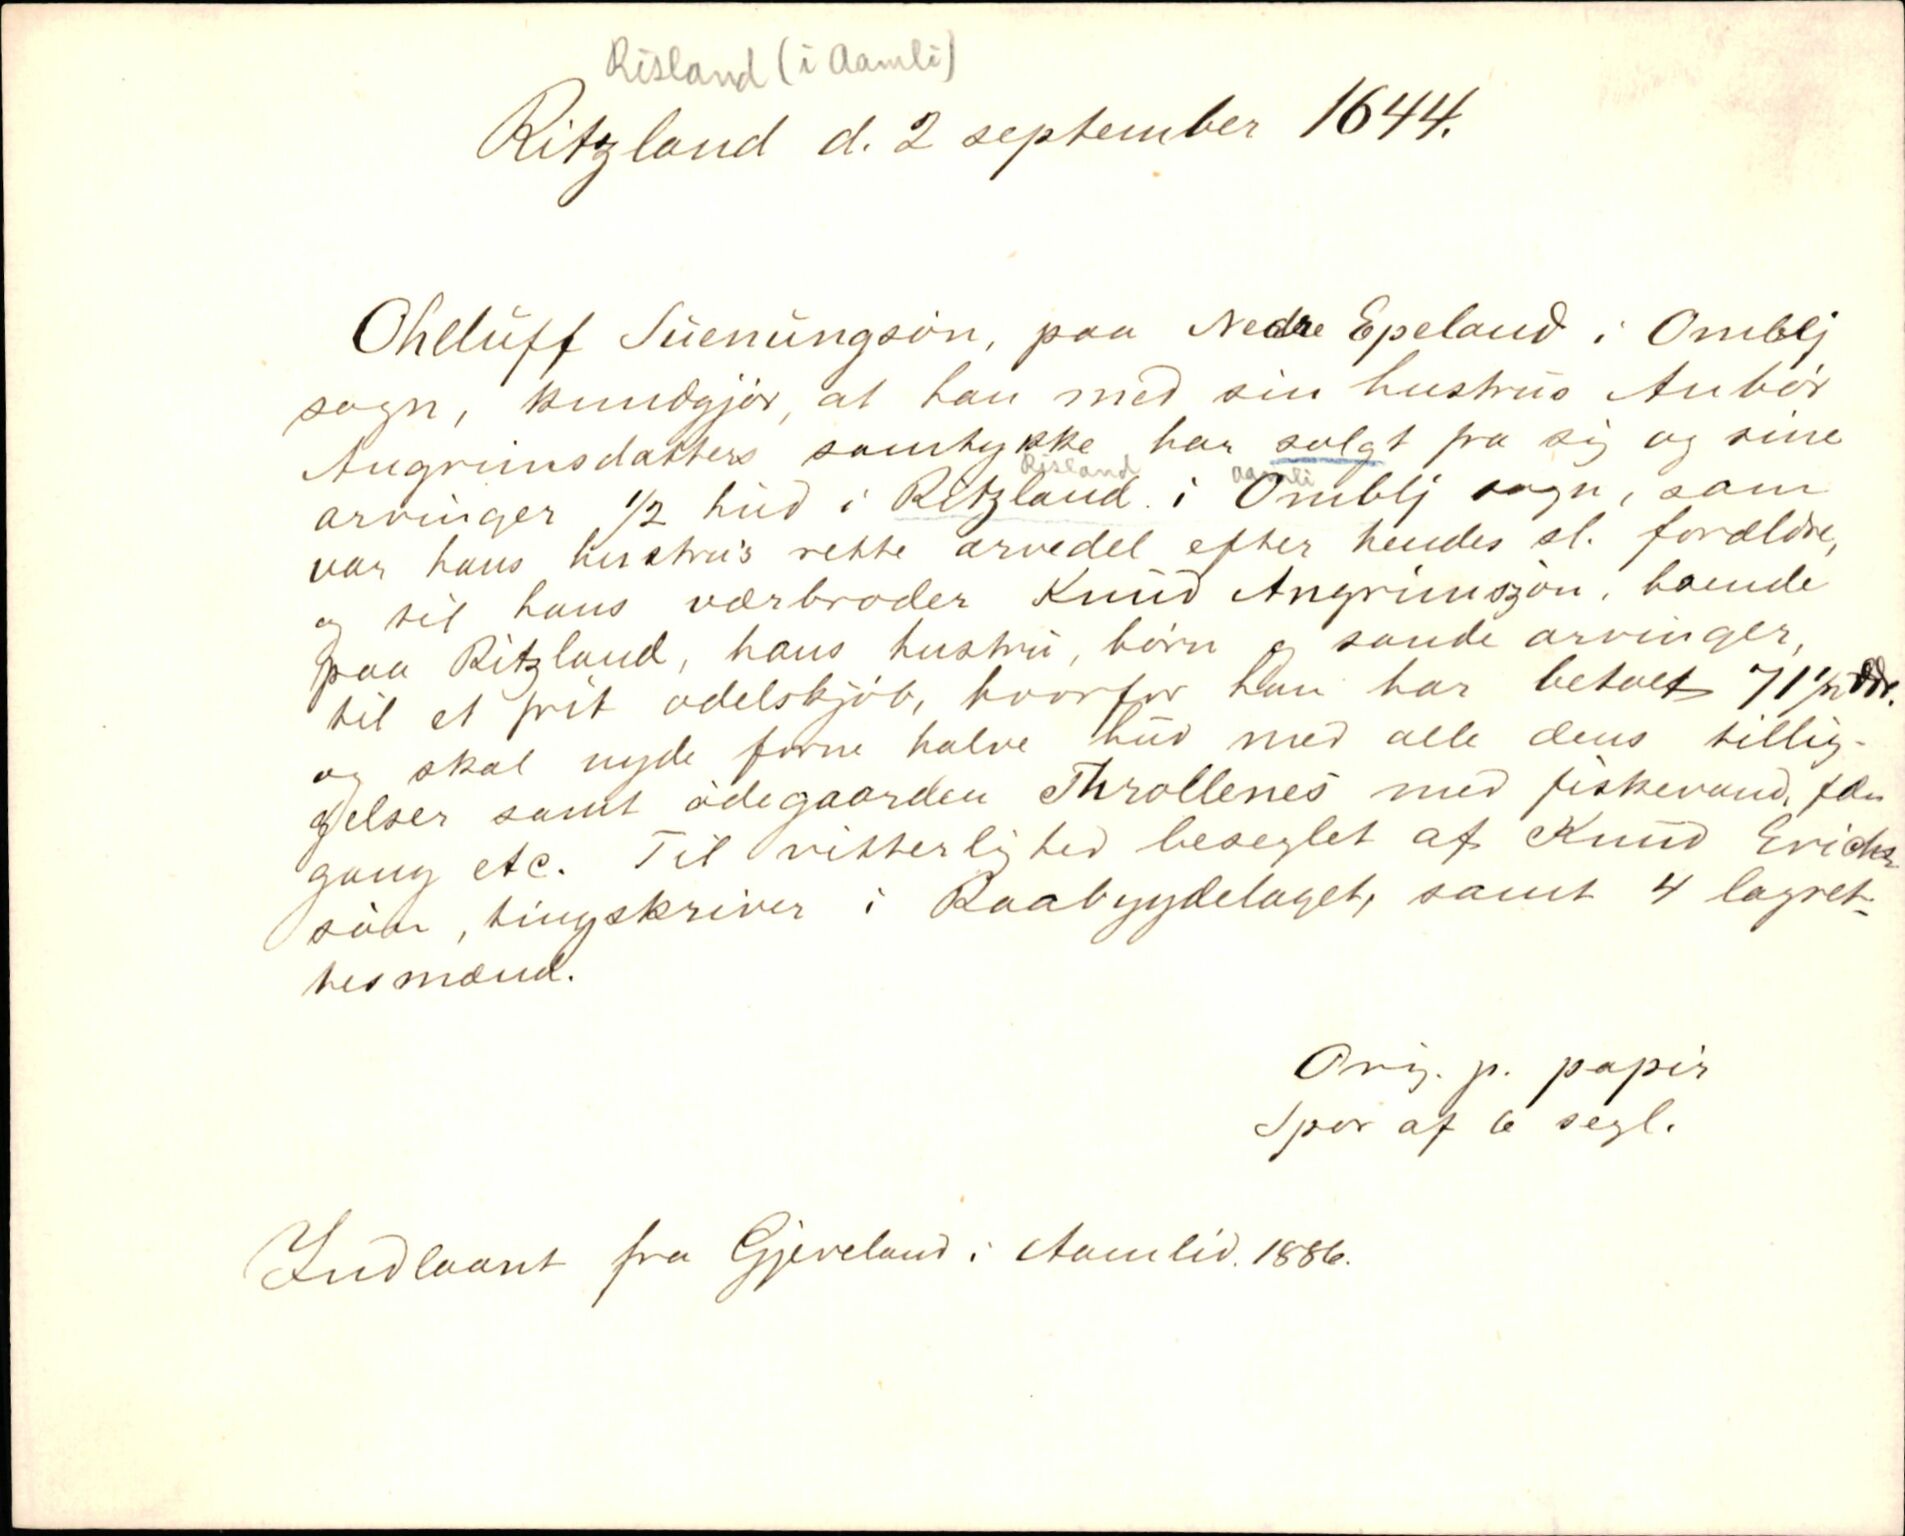 Risland (i Aamli)
Ritzland d. 2 september 1644.
Ohlluff Suenungsøn, paa Nedre Epeland i Omblj
sogn, kundgjør, at han med sin hustrus Anbór
Angrimsdatters samtykke har solgt fra sig og sine
Risland Aamli
arvinger 1/2 hud i Ritzland i Omblj sogn, som
var hans hustru's rette arvedel efter hendes sl. forældre,
og til hans værbroder Knud Angrimszøn, boende
paa Ritzland, hans hustru, børn og sande arvinger,
til et frit odelskjøb, hvorfor han har betalt 71 1/2 ddr.
og skal nyde forne halve hud med alle dens tillig-
gelser samt ødegaarden Throllenes med fiskevand, fæ-
gang etc. Til vitterlighed beseglet af Knud Erichs-
søn, tingskriver i Raabygdelaget, samt 4 lagret-
tesmænd.
Orig. p. papir
Spor af 6 segl.
Indlaant fra Gjeveland i Aamlid. 1886.